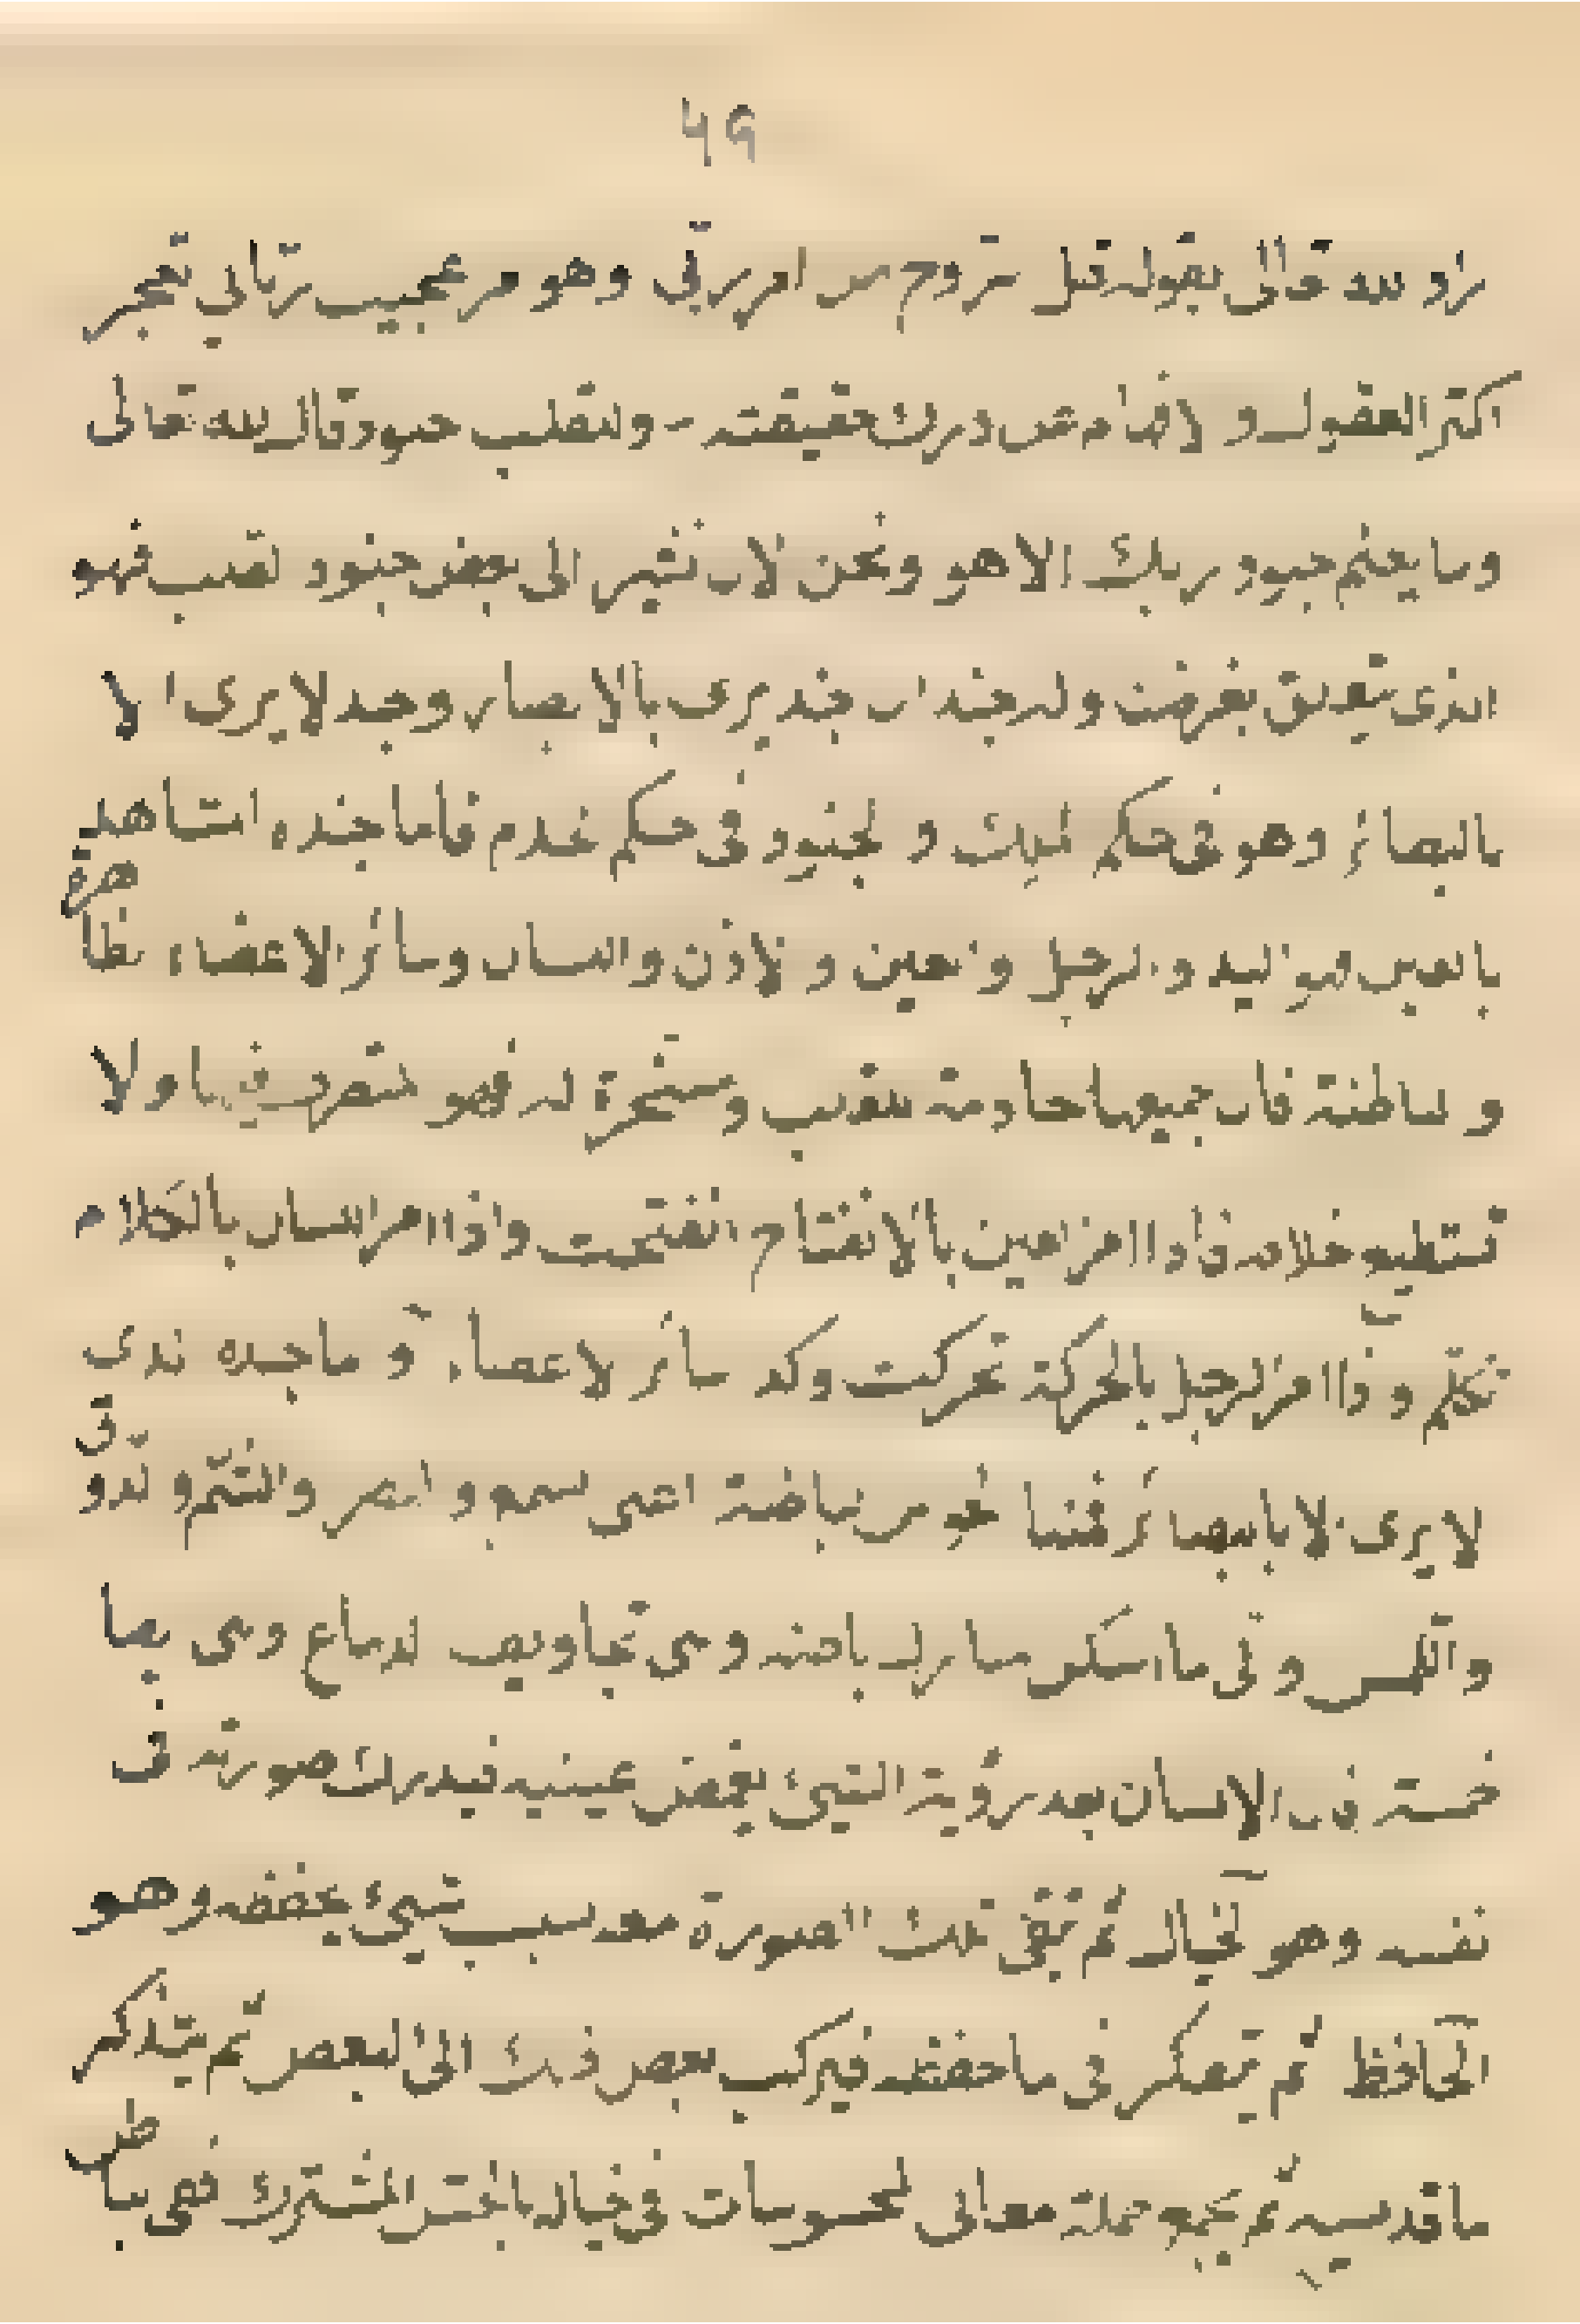 ٤٩
راد الله تعالى بقوله قل الروح من امر ربّي وهو امر عجيب ربّاني تعجز
اكثر العقول و الافهام عن درك حقيقته - وللقلب جنود قال الله تعالى
وما يعلم جنود ربك الا هو ونحن الان نشير الى بعض جنود القلب فهو
الذى يتعلق بغرضنا وله جندان جند يرى بالابصار وجند لا يرى الا
بالبصائر وهو فى حكم الملك و الجنود فى حكم الخدم فاما جنده المشاهد
بالعين فهو اليد و الرجل و العين و الاذن واللسان وسائر الاعضاء الظاهرة
و الباطنة فان جميعها خادمة للقلب ومسخرة له فهو المتصرف فيها ولا
تستطيع خلافه فاذا امر العين بالانفتاح انفتحت واذا امر اللسان بالكلام
تكلّم و اذا امر الرجل بالحركة تحركت وكذا سائر الاعضاء و اما جنده الذى
لا يرى الا بالبصائر فمنها الحواس الباطنة اعنى السمع و البصر والشمّ و الذوق
واللمس وهى ما اسكن منازل باطنه وهى تجاويف الدماغ وهى ايضا
خمسة فان الانسان بعد رؤية الشيئ يغمض عينيه فيدرك صورته فى
نفسه وهو الخيال ثم تبقى تلك الصورة معه بسبب شيئ يحفظه وهو
الحافظ ثم يتفكر فى ما حفظه فيركب بعض ذلك الى البعض ثم يتذكر
ما قد نسيه ثم يجمع جملة معانى المحسوسات فى خياله بالحسّ المشترك ففى الباطن